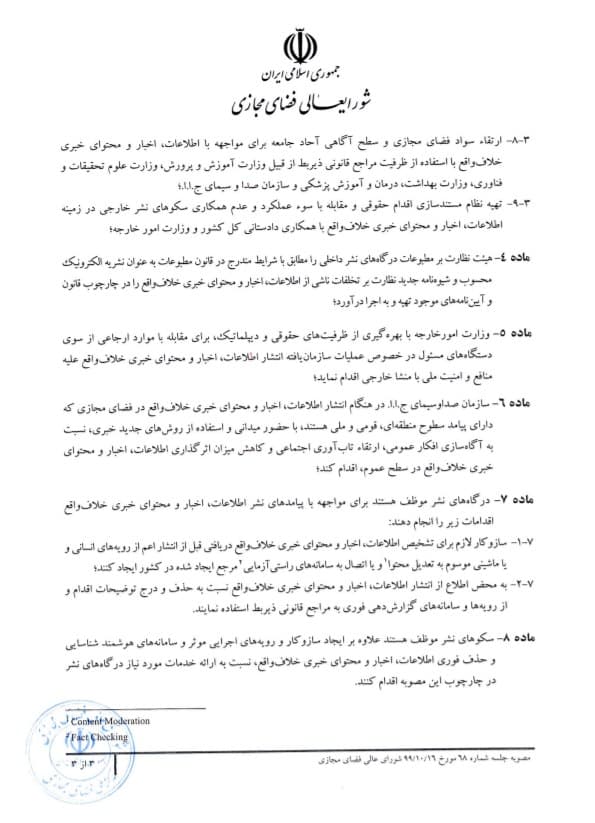 جمهوری اسلامی ایران
شورایعالی فضای مجازی
۳-۸- ارتقاء سواد فضای مجازی و سطح آگاهی آحاد جامعه برای مواجهه با اطلاعات، اخبار و محتوای خبری
خلاف‌واقع با استفاده از ظرفیت مراجع قانونی ذیربط از قبیل وزارت آموزش و پرورش، وزارت علوم تحقیقات و
فناوری، وزارت بهداشت، درمان و آموزش پزشکی و سازمان صدا و سیمای ج.ا.ا.؛
۳-۹- تهیه نظام مستندسازی اقدام حقوقی و مقابله با سوء عملکرد و عدم همکاری سکوهای نشر خارجی در زمینه
اطلاعات، اخبار و محتوای خبری خلاف‌واقع با همکاری دادستانی کل کشور و وزارت امور خارجه؛
ماده ۴- هیئت نظارت بر مطبوعات درگاه‌های نشر داخلی را مطابق با شرایط مندرج در قانون مطبوعات به عنوان نشریه الکترونیک
محسوب و شیوه‌نامه جدید نظارت بر تخلفات ناشی از اطلاعات، اخبار و محتوای خبری خلاف‌واقع را در چارچوب قانون
و آیین‌نامه‌های موجود تهیه و به اجرا درآورد؛
ماده ۵- وزارت امورخارجه با بهره‌گیری از ظرفیت‌های حقوقی و دیپلماتیک، برای مقابله با موارد ارجاعی از سوی
دستگاه‌های مسئول در خصوص عملیات سازمان‌یافته انتشار اطلاعات، اخبار و محتوای خبری خلاف‌واقع علیه
منافع و امنیت ملی با منشا خارجی اقدام نماید؛
ماده ۶- سازمان صداوسیمای ج.ا.ا. در هنگام انتشار اطلاعات، اخبار و محتوای خبری خلاف‌واقع در فضای مجازی که
دارای پیامد سطوح منطقه‌ای، قومی و ملی هستند، با حضور میدانی و استفاده از روش‌های جدید خبری، نسبت
به آگاه‌سازی افکار عمومی، ارتقاء تاب‌آوری اجتماعی و کاهش میزان اثرگذاری اطلاعات، اخبار و محتوای
خبری خلاف‌واقع در سطح عموم، اقدام کند؛
ماده ۷- درگاه‌های نشر موظف هستند برای مواجهه با پیامدهای نشر اطلاعات، اخبار و محتوای خبری خلاف‌واقع
اقدامات زیر را انجام دهند:
۷-۱- سازوکار لازم برای تشخیص اطلاعات، اخبار و محتوای خبری خلاف‌واقع دریافتی قبل از انتشار اعم از رویه‌های انسانی و
یا ماشینی موسوم به تعدیل محتوا¹ و یا اتصال به سامانه‌های راستی‌آزمایی² مرجع ایجاد شده در کشور ایجاد کنند؛
۷-۲- به محض اطلاع از انتشار اطلاعات، اخبار و محتوای خبری خلاف‌واقع نسبت به حذف و درج توضیحات اقدام و
از رویه‌ها و سامانه‌های گزارش‌دهی فوری به مراجع قانونی ذیربط استفاده نمایند.
ماده ۸- سکوهای نشر موظف هستند علاوه بر ایجاد سازوکار و رویه‌های اجرایی موثر و سامانه‌های هوشمند شناسایی
و حذف فوری اطلاعات، اخبار و محتوای خبری خلاف‌واقع، نسبت به ارائه خدمات مورد نیاز درگاه‌های نشر
در چارچوب این مصوبه اقدام کنند.
¹ Content Moderation
² Fact Checking
مصوبه جلسه شماره ۶۸ مورخ ۹۹/۱۰/۱۶ شورای عالی فضای مجازی
۳ از ۳